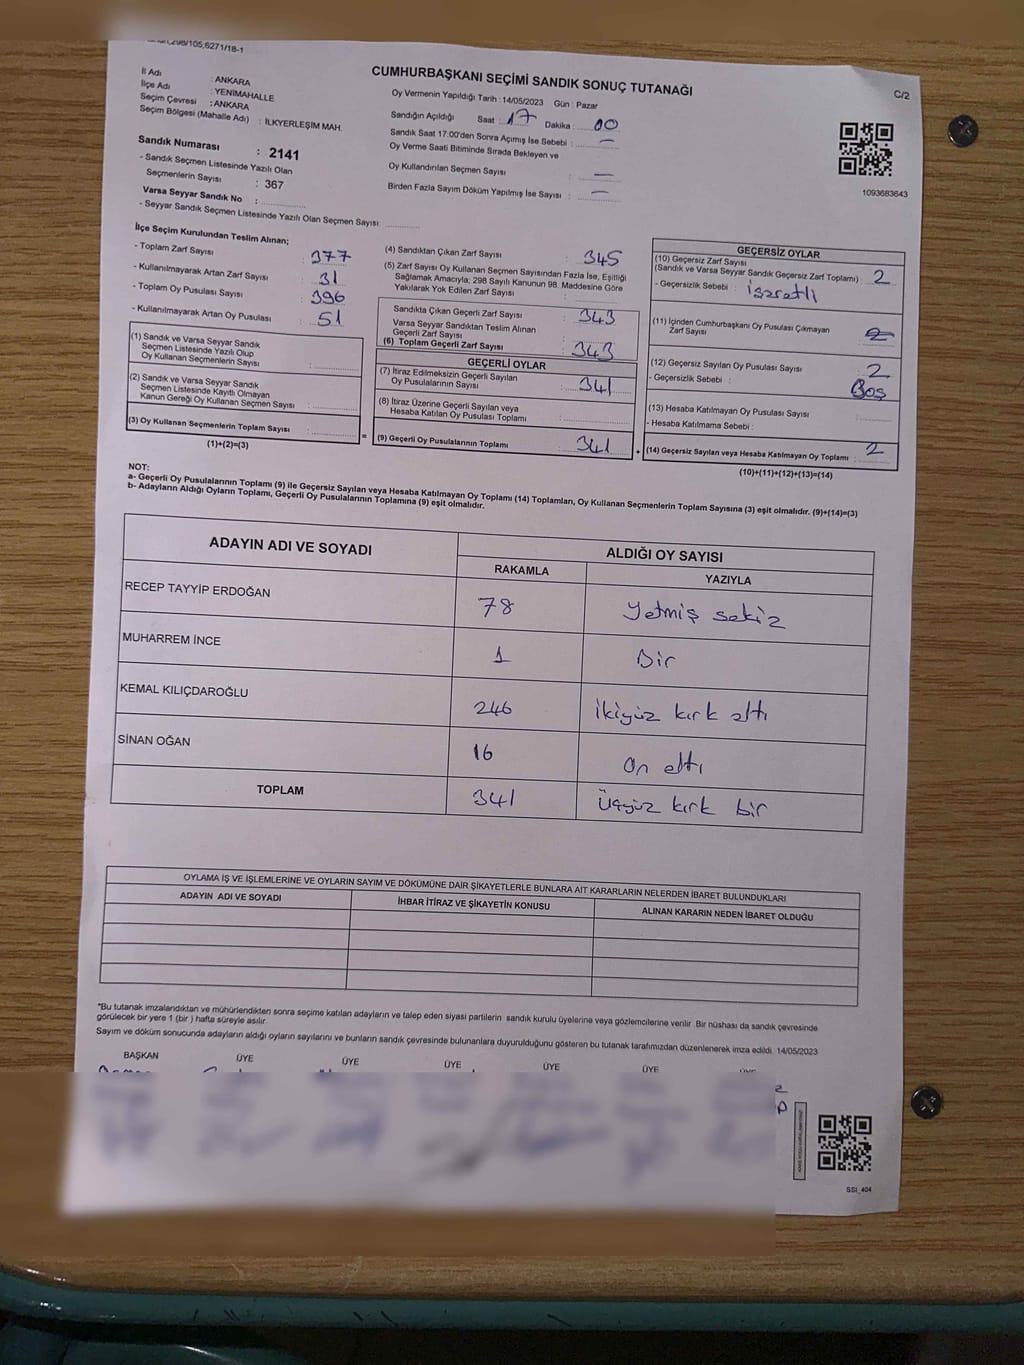 298/105,6271/18-1
CUMHURBAŞKANI SEÇİMİ SANDIK SONUÇ TUTANAĞI
C/2
İl Adı : ANKARA
İlçe Adı : YENİMAHALLE
Seçim Çevresi : ANKARA
Seçim Bölgesi (Mahalle Adı) : İLKYERLEŞİM MAH.
Sandık Numarası : 2141
- Sandık Seçmen Listesinde Yazılı Olan
Seçmenlerin Sayısı : 367
Varsa Seyyar Sandık No :
- Seyyar Sandık Seçmen Listesinde Yazılı Olan Seçmen Sayısı:
Oy Vermenin Yapıldığı Tarih : 14/05/2023 Gün : Pazar
Sandığın Açıldığı Saat : 17 Dakika : 00
Sandık Saat 17:00'den Sonra Açımış İse Sebebi : —
Oy Verme Saati Bitiminde Sırada Bekleyen ve
Oy Kullandırılan Seçmen Sayısı : —
Birden Fazla Sayım Döküm Yapılmış İse Sayısı : —
1093683643
İlçe Seçim Kurulundan Teslim Alınan;
- Toplam Zarf Sayısı : 377
- Kullanılmayarak Artan Zarf Sayısı : 31
- Toplam Oy Pusulası Sayısı : 396
- Kullanılmayarak Artan Oy Pusulası : 51
(1) Sandık ve Varsa Seyyar Sandık
Seçmen Listesinde Yazılı Olup
Oy Kullanan Seçmenlerin Sayısı :
(2) Sandık ve Varsa Seyyar Sandık
Seçmen Listesinde Kayıtlı Olmayan
Kanun Gereği Oy Kullanan Seçmen Sayısı :
(3) Oy Kullanan Seçmenlerin Toplam Sayısı :
(1)+(2)=(3)
(4) Sandıktan Çıkan Zarf Sayısı : 345
(5) Zarf Sayısı Oy Kullanan Seçmen Sayısından Fazla İse, Eşitliği
Sağlamak Amacıyla; 298 Sayılı Kanunun 98. Maddesine Göre
Yakılarak Yok Edilen Zarf Sayısı :
Sandıkta Çıkan Geçerli Zarf Sayısı : 343
Varsa Seyyar Sandıktan Teslim Alınan
Geçerli Zarf Sayısı :
(6) Toplam Geçerli Zarf Sayısı : 343
GEÇERLİ OYLAR
(7) İtiraz Edilmeksizin Geçerli Sayılan
Oy Pusulalarının Sayısı : 341
(8) İtiraz Üzerine Geçerli Sayılan veya
Hesaba Katılan Oy Pusulası Toplamı :
=
(9) Geçerli Oy Pusulalarının Toplamı : 341
+
GEÇERSİZ OYLAR
(10) Geçersiz Zarf Sayısı
(Sandık ve Varsa Seyyar Sandık Geçersiz Zarf Toplamı) : 2
- Geçersizlik Sebebi : İşaretli
(11) İçinden Cumhurbaşkanı Oy Pusulası Çıkmayan
Zarf Sayısı : 2
(12) Geçersiz Sayılan Oy Pusulası Sayısı : 2
- Geçersizlik Sebebi : Boş
(13) Hesaba Katılmayan Oy Pusulası Sayısı :
- Hesaba Katılmama Sebebi :
(14) Geçersiz Sayılan veya Hesaba Katılmayan Oy Toplamı : 2
(10)+(11)+(12)+(13)=(14)
NOT:
a- Geçerli Oy Pusulalarının Toplamı (9) ile Geçersiz Sayılan veya Hesaba Katılmayan Oy Toplamı (14) Toplamları, Oy Kullanan Seçmenlerin Toplam Sayısına (3) eşit olmalıdır. (9)+(14)=(3)
b- Adayların Aldığı Oyların Toplamı, Geçerli Oy Pusulalarının Toplamına (9) eşit olmalıdır.
ADAYIN ADI VE SOYADI
ALDIĞI OY SAYISI
RAKAMLA YAZIYLA
RECEP TAYYİP ERDOĞAN 78 Yetmiş sekiz
MUHARREM İNCE 1 Bir
KEMAL KILIÇDAROĞLU 246 İkiyüz kırk altı
SİNAN OĞAN 16 On altı
TOPLAM 341 Üçyüz kırk bir
OYLAMA İŞ VE İŞLEMLERİNE VE OYLARIN SAYIM VE DÖKÜMÜNE DAİR ŞİKAYETLERLE BUNLARA AİT KARARLARIN NELERDEN İBARET BULUNDUKLARI
ADAYIN ADI VE SOYADI İHBAR İTİRAZ VE ŞİKAYETİN KONUSU ALINAN KARARIN NEDEN İBARET OLDUĞU
*Bu tutanak imzalandıktan ve mühürlendikten sonra seçime katılan adayların ve talep eden siyasi partilerin sandık kurulu üyelerine veya gözlemcilerine verilir. Bir nüshası da sandık çevresinde
görülecek bir yere 1 (bir) hafta süreyle asılır.
Sayım ve döküm sonucunda adayların aldığı oyların sayılarını ve bunların sandık çevresinde bulunanlara duyurulduğunu gösteren bu tutanak tarafımızdan düzenlenerek imza edildi. 14/05/2023
BAŞKAN ÜYE ÜYE ÜYE ÜYE ÜYE ÜYE
SSI_404